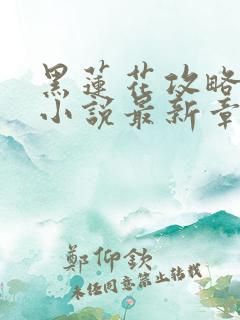 黑蓮花攻略
小說最新章
鄭仰欽
未經同意禁止轉載